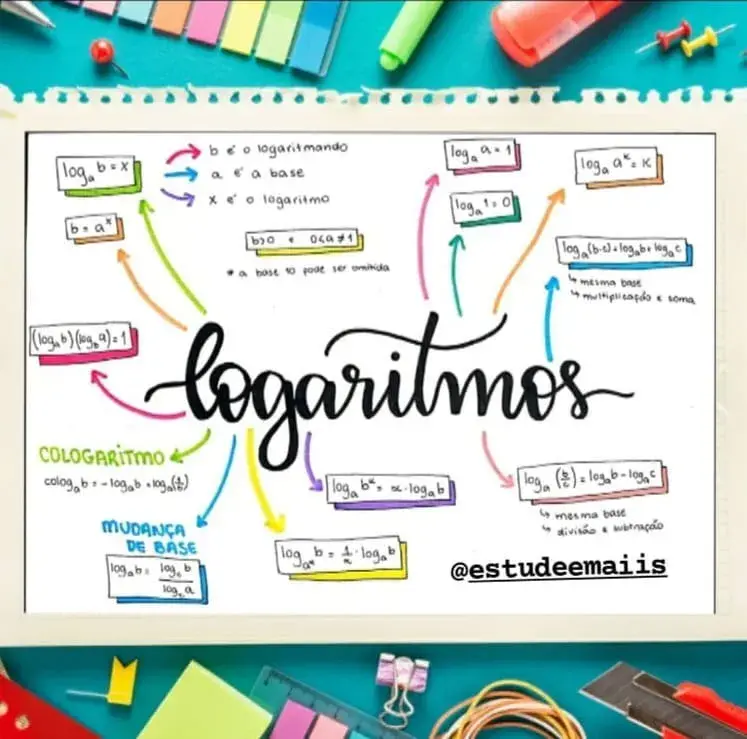 log_a b = x
b é o logaritmando
a é a base
x é o logaritmo
b = a^x
b>0 e 0<a≠1
* a base 10 pode ser omitida
log_a a = 1
log_a 1 = 0
log_a a^k = k
log_a (b·c) = log_a b + log_a c
↳ mesma base
↳ multiplicação e soma
(log_a b)(log_b a) = 1
logaritmos
COLOGARITMO
colog_a b = -log_a b = log_a (1/b)
MUDANÇA
DE BASE
log_a b = log_c b / log_c a
log_a b^α = α · log_a b
log_a^α b = 1/α · log_a b
log_a (b/c) = log_a b - log_a c
↳ mesma base
↳ divisão e subtração
@estudeemaiis